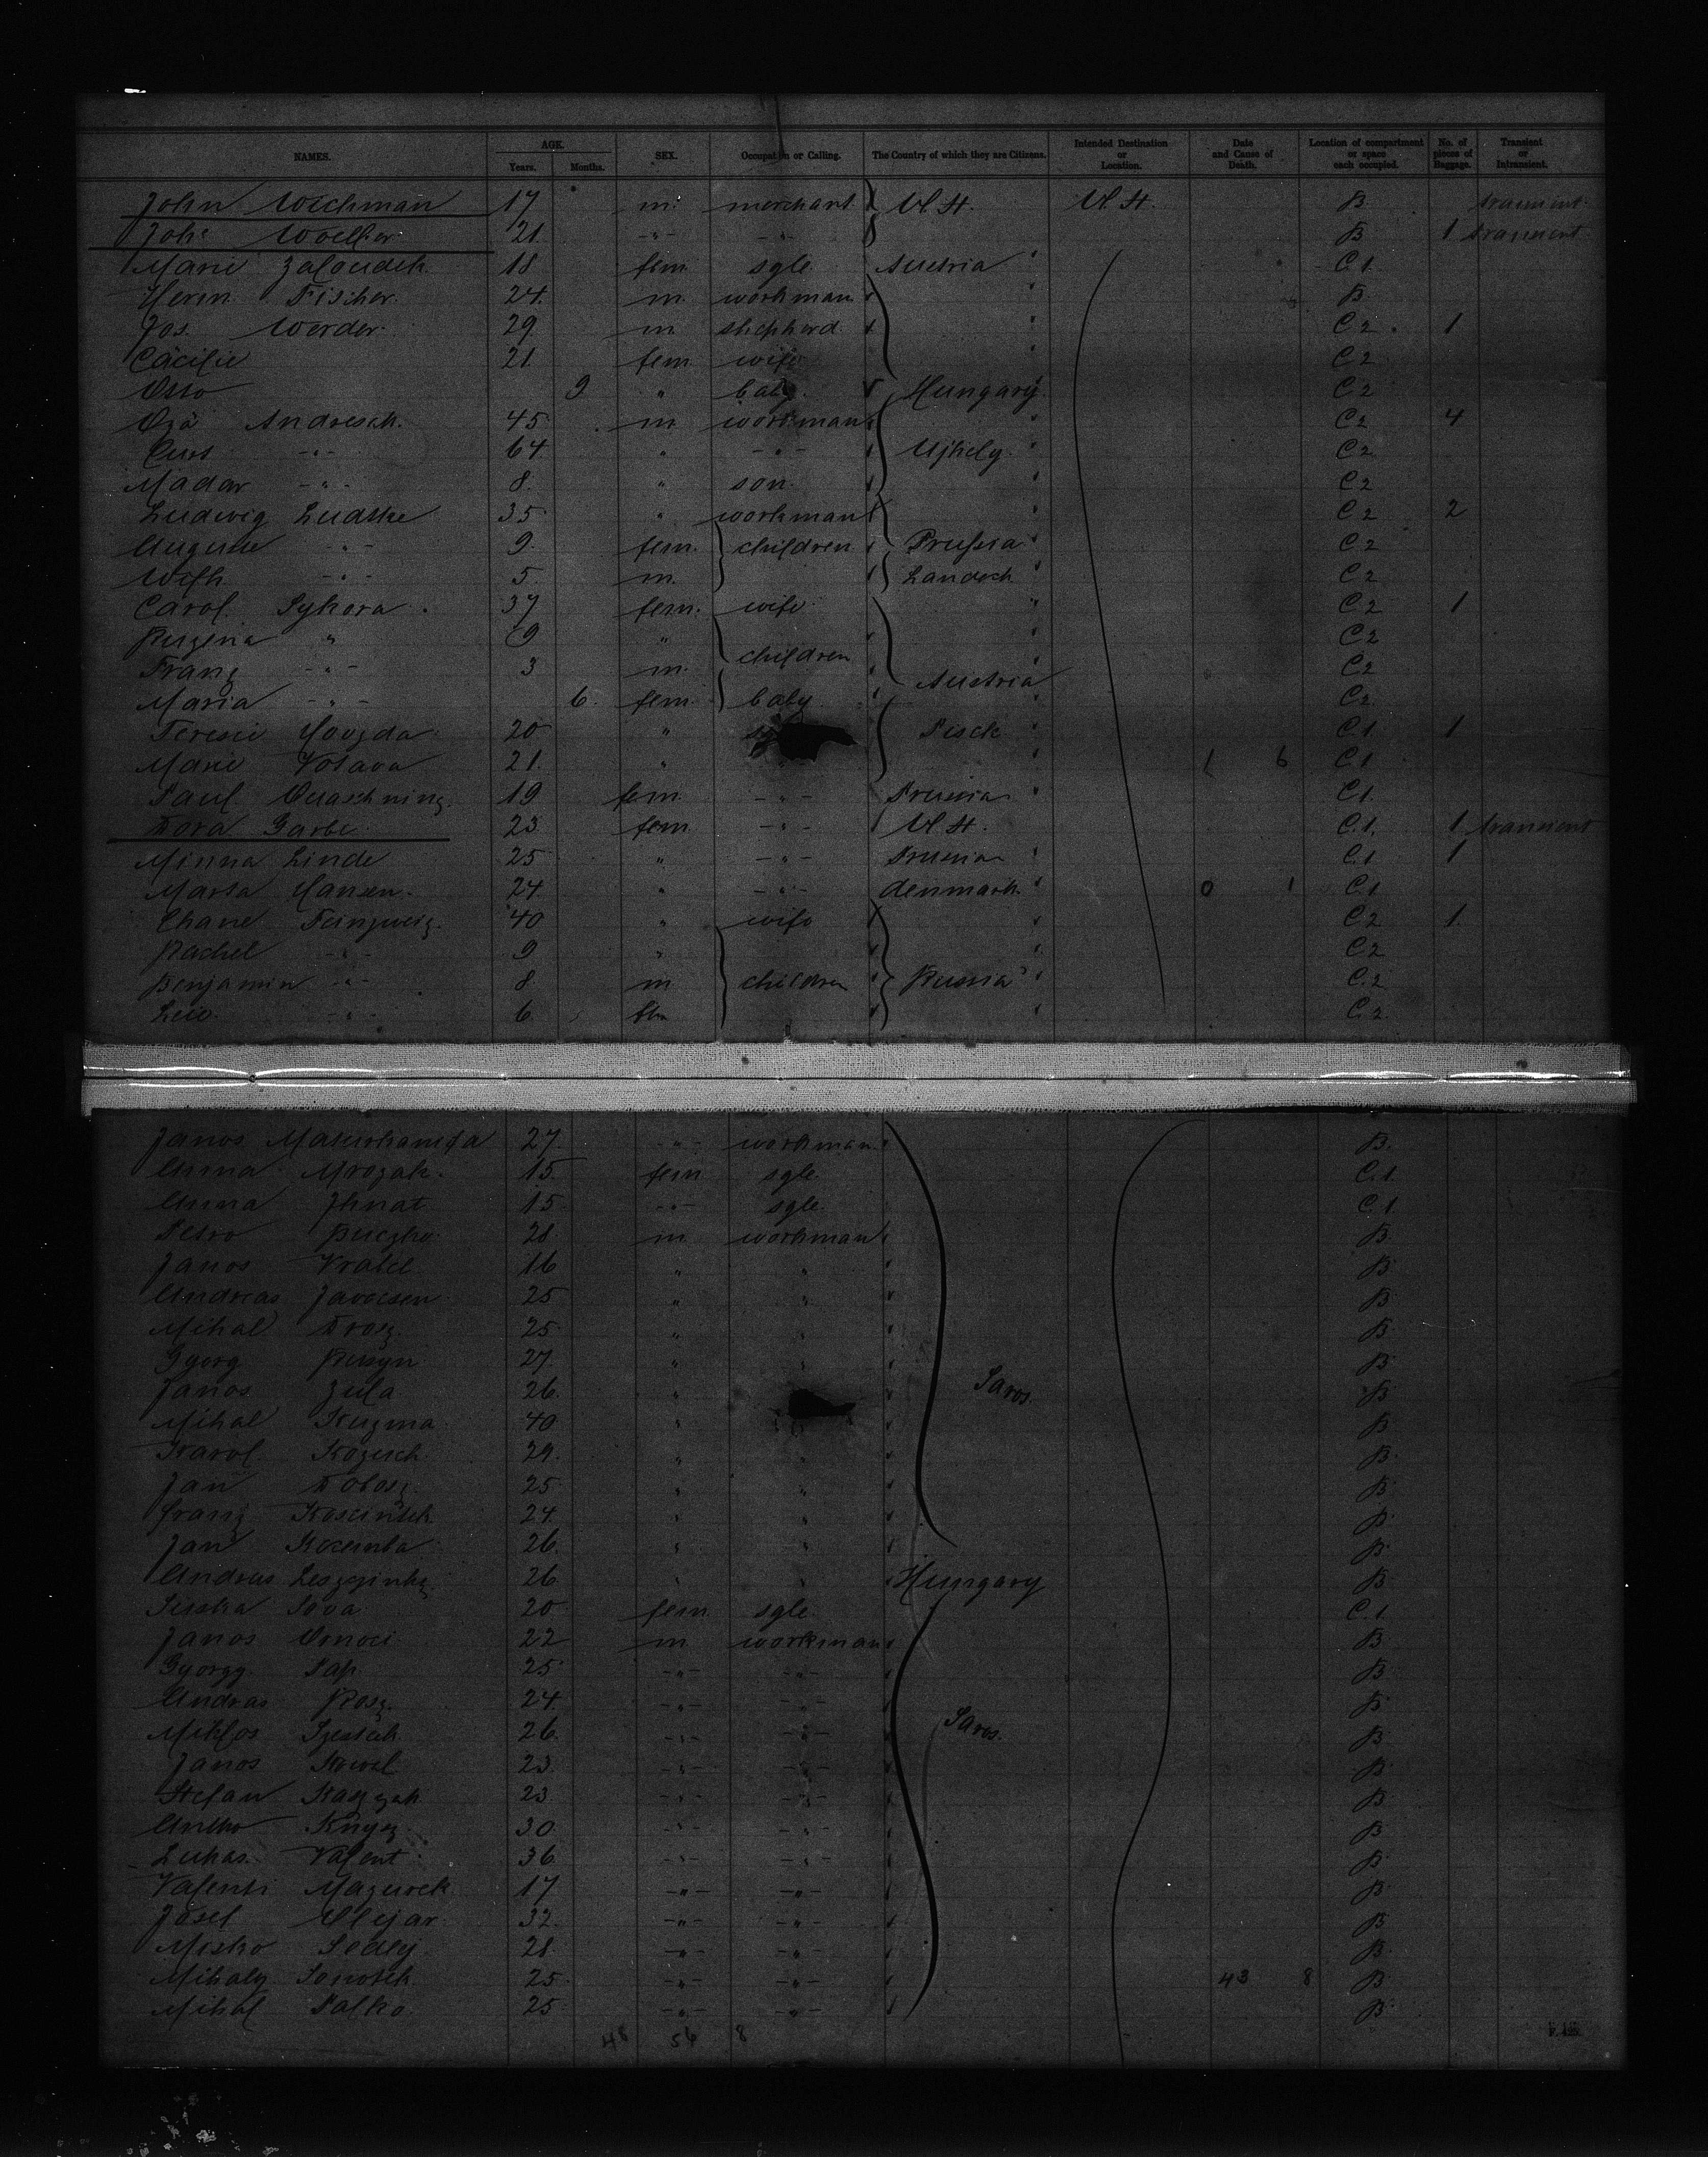 NAMES. AGE. Years. Months. SEX. Occupation or Calling. The Country of which they are Citizens. Intended Destination or Location. Date and Cause of Death. Location of compartment or space each occupied. No. of pieces of Baggage. Transient or Intransient.
John Wichman 17 m. merchant U.St. U.St. B transient
Joh. 21 -"- -"- B 1 transient
Marie Zaloudek 18 fem. sgle Austria " C.1
Herm. Fischer 24 m. workman " B
Jos. Werder 29 m shepherd " C 2 1
Cäcilie 21 fem. wife " C 2
Otto 9 " baby Hungary " C 2
Andresch. 45 m workman " C 2 4
-"- 64 " -"- Ujhely " C 2
Madar -"- 8 " son " C 2
Ludwig Ludtke 35 " workman " C 2 2
Auguste -"- 9 fem. children Prussia " C 2
Wilh. -"- 5 m. Landeck " C 2
Carol. Sykora 37 fem. wife " C 2 1
Ruzena " 9 " children " C 2
Franz -"- 3 m. " C 2
Maria -"- 6 fem baby Austria " C 2
Teresie 20 " Pisek " C.1 1
Marie Votava 21 " " 1 6 C 1
Paul. Quaschning 19 fem. -"- Prussia " C 1.
Dora Garbe 23 fem -"- U.St. C.1. 1 transient
Minna Linde 25 " -"- Prussia " C.1 1
Marta Hansen 24 " -"- denmark " 0 1 C.1
Chane Feinzweig 40 " wife " C 2 1
Rachel -"- 9 " children " C 2
Benjamin -"- 8 m Russia " C.2
-"- 6 fem " C.2
Janos 27 -"- workman B.
Anna Mrozak. 15 fem sgle C.1
Anna Ihnat 15 -"- sgle C.1
Petro Buczko 28 m workman B
Janos 16 " " B
Andreas 25 " " B
Mihal Drosz 25 " " B
Gyorg Rusyn 27 " " B
Janos Zula 26 " Saros. B
Mihal Kuzma 40 " B
Karol. 29 " " B
Jan Dobosz 25 " " B
Franz 24 " " B
Jan 26 " " B
Andras 26 " " Hungary B
Sova 20 fem sgle C.1
Janos 22 m workman B
Gyorgy Pap. 25 -"- -"- B
Andras Rosz. 24 -"- -"- B
Miklos 26 -"- -"- Saros. B
Janos Kowal 23 -"- -"- B
Stefan Kaszzak 23 -"- -"- B
30 -"- -"- B
Lukas Valent 36 -"- -"- B
Valenti Mazurek 17 -"- -"- B
Josef Olejar 32 -"- -"- B
Misko Sedlej 28 -"- -"- B
Mihaly 25 -"- -"- 43 8 B
Mihal Palko 25 -"- -"- B
48 56 8